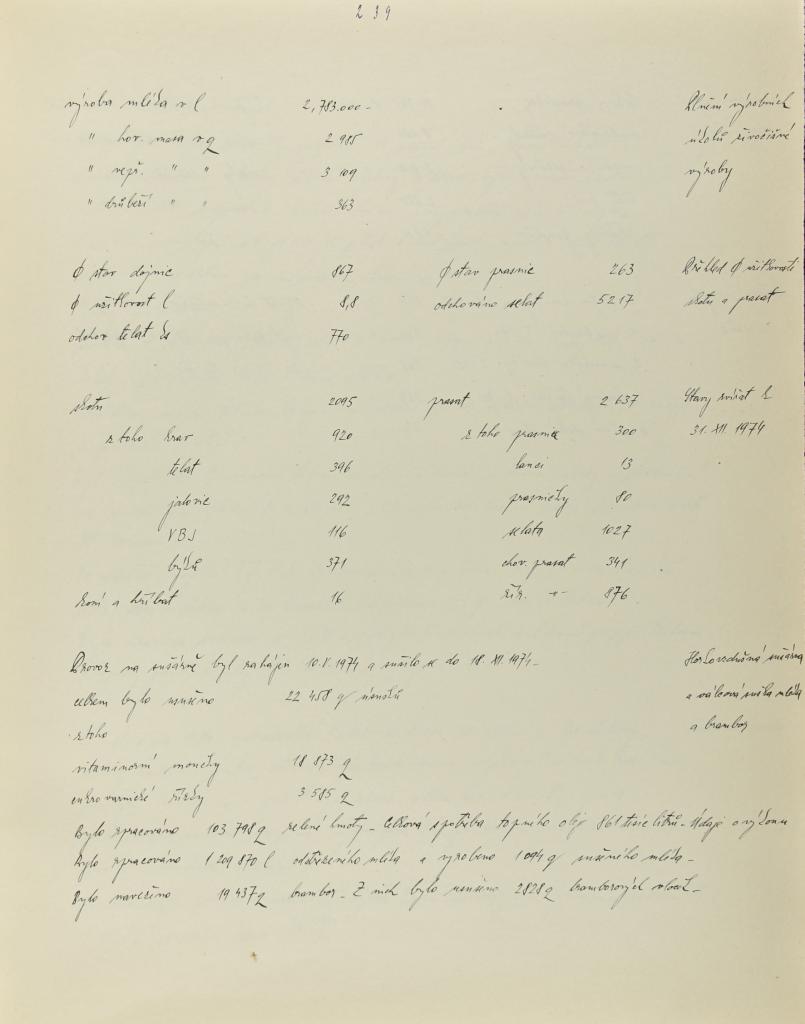 239
výroba mléka v l 2,783.000.- Plnění výrobních
" hov. masa v q 2 985 úkolů živočišné
" vepř. " " 3 109 výroby
" drůbeží " " 363
Ø stav dojnic 867 Ø stav prasnic 263 Přehled Ø užitkovosti
Ø užitkovost l 8,8 odchováno selat 5217 skotu a prasat
odchov telat ks 770
skotu 2095 prasat 2 637 Stavy zvířat k
z toho krav 920 z toho prasnic 300 31. XII. 1974
telat 396 kanci 13
jalovic 292 prasničky 80
VBJ 116 selata 1027
býků 371 chov. prasat 341
koní a hříbat 16 žír. -"- 876
Provoz na sušárně byl zahájen 10.V.1974 a sušilo se do 18. XII. 1974. Horkovzdušná sušárna
celkem bylo usušeno 22 458 q úsušků a válcová suška mléka
z toho a brambor
vitaminorní moučky 18 873 q
cukrovarnické řízky 3 585 q
Bylo zpracováno 103 798 q zelené hmoty. Celková spotřeba topného oleje 861 tisíc litrů. Údaje o výkonu
Bylo zpracováno 1 209 870 l odstředěného mléka a vyrobeno 1 094 q sušeného mléka.
Bylo navezeno 19 437 q brambor. Z nich bylo usušeno 2828 q bramborových vloček.